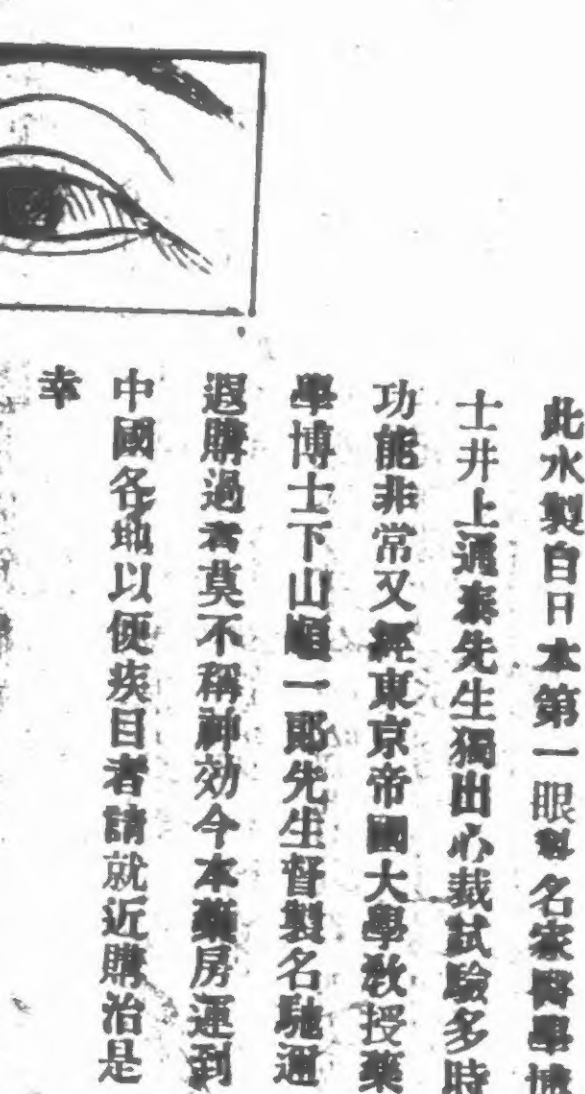 此水製自日本第一眼科名家醫學博
士井上通泰先生獨出心裁試驗多時
功能非常又經東京帝國大學教授藥
學博士下山順一郎先生督製名馳遐
遐購過者莫不稱神効今本藥房運到
中國各地以便疾目者請就近購治是
幸